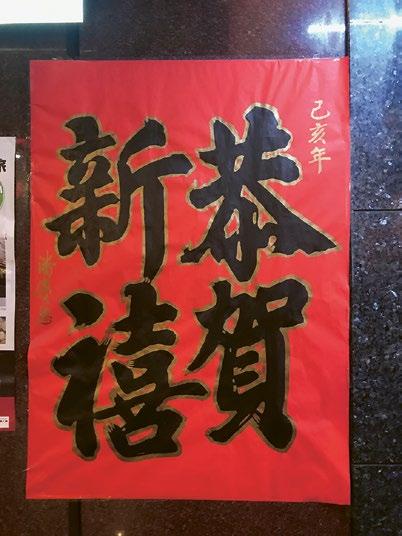 己亥年
恭賀
新禧